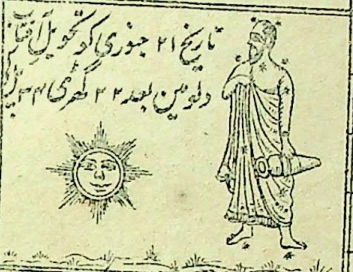 تاریخ ۲۱ جنوری کو تحویل آفتاب
دلو مین بعد ۲۲ گھڑی ۴۴ پل کے